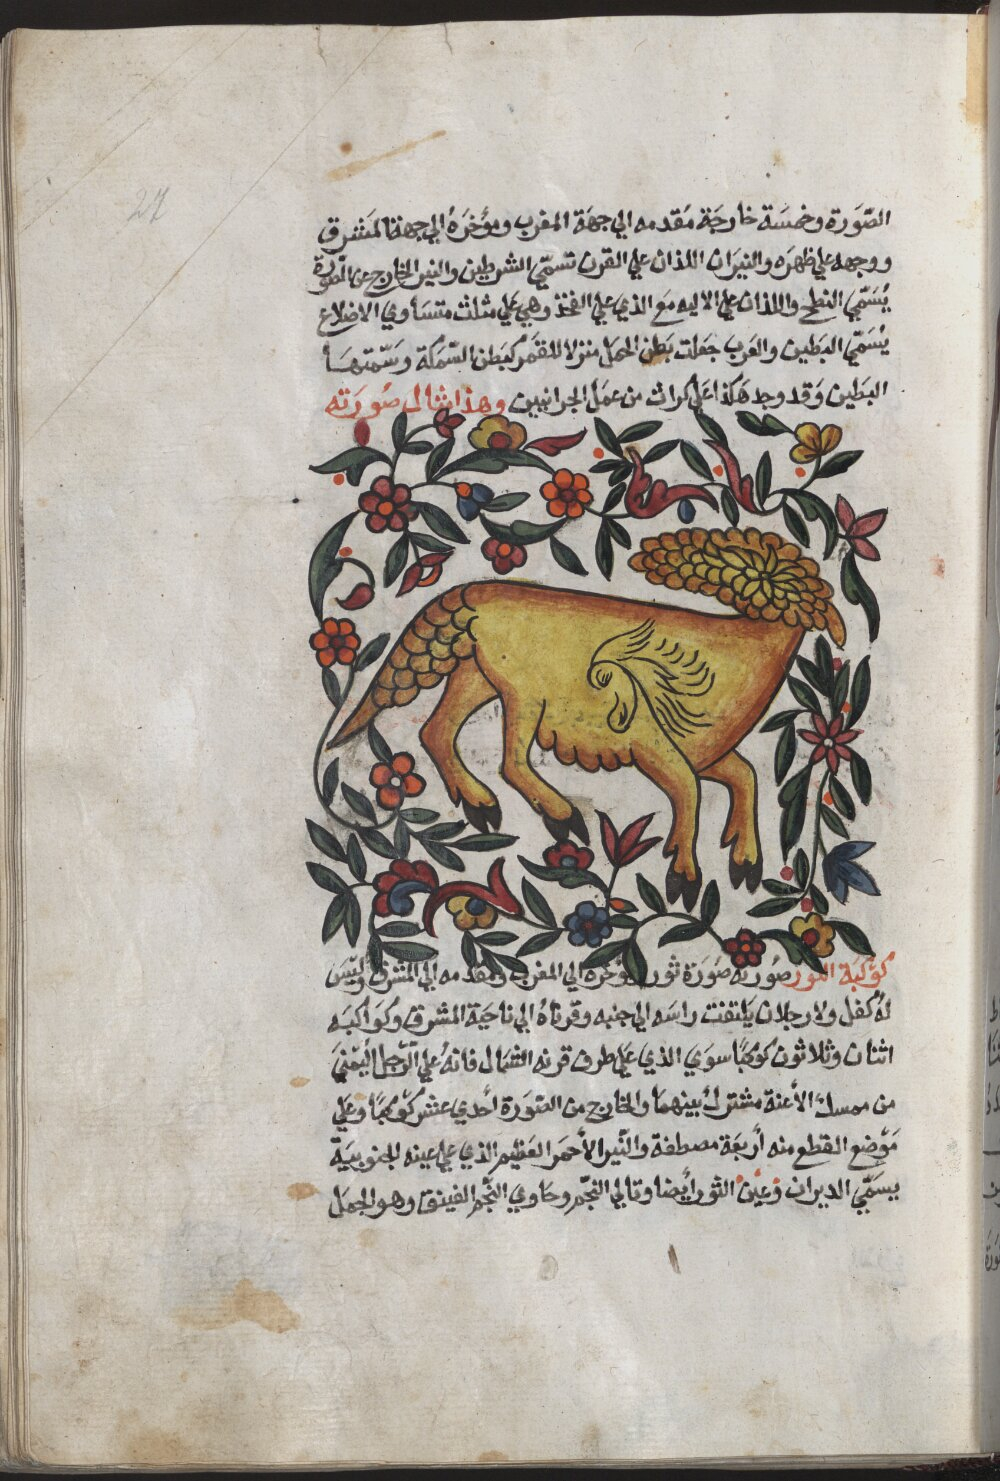 27
الصّورة وخمسَة خارجَة مقدمه الي جهَة المغرب وموٴخرَهُ الي جهة المَشرق
ووجهه علي ظهرَه والنيرَان اللذان علي القرن تسمّي الشرطين والنير الخارج عن الصّورَة
يُسَمّي النطح واللذان علي الاليه مَع الذي علي الفخذ وهي عَلي مثلث متسَاوي الاضلاع
يُسَمّي البَطين والعَرب جعلت بَطن الحمل منزلا للقمَر كبَطن السّمكة وسَمّتهَا
البَطين وَقد وجد هَكذا عَلي كراتٍ من عمَل الحرانيين وهذا مثال صُورَته
كوْكبَة الثور صُورته صُورَة ثور موٴخره الي المغرب ومقدمه الي المشرق وليْسَ
لهُ كفل ولا رجلان يَلتفت راسَه الي جنبه وقرناهُ الي ناحيَة المشرق وكوَاكبَه
اثنان وثلاثون كوكبًا سوَي الذي عَلي طرف قرنه الشمَال فانهُ علي الرّجل اليُمْنيَ
من ممسك الأعنة مشترك بينهمَا والخارج من الصّورَة أحدي عشر كوْكبًا وعلي
مَوْضع القطع منه أربعَة مصطفة والنّير الأحمَر العَظيم الذي علي عينه الجنوبيَة
يسَمّي الدبران وعَيْن الثور أيضًا وتالي النجْم وحَاوي النّجْم الفينق وهو الجمَل